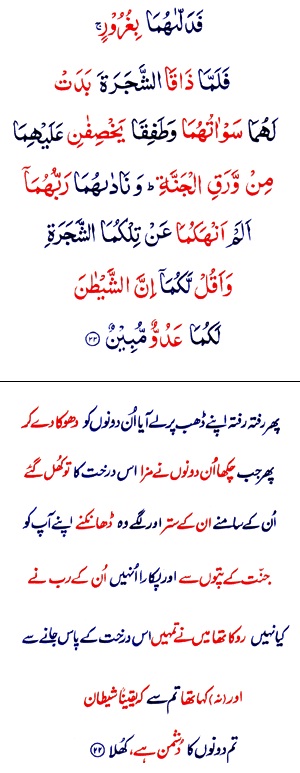 فَدَلّٰىهُمَا بِغُرُوْرٍ ۚ
فَلَمَّا ذَاقَا الشَّجَرَةَ بَدَتْ
لَهُمَا سَوْاٰتُهُمَا وَطَفِقَا يَخْصِفٰنِ عَلَيْهِمَا
مِنْ وَّرَقِ الْجَنَّةِ ؕ وَ نَادٰىهُمَا رَبُّهُمَاۤ
اَلَمْ اَنْهَكُمَا عَنْ تِلْكُمَا الشَّجَرَةِ
وَاَقُلْ لَّكُمَاۤ اِنَّ الشَّيْطٰنَ
لَكُمَا عَدُوٌّ مُّبِيْنٌ ﴿۲۲﴾
پھر رفتہ رفتہ اپنے ڈھب پر لے آیا اُن دونوں کو دھوکا دے کر
پھر جب چکھا اُن دونوں نے مزا اس درخت کا تو کُھل گئے
اُن کے سامنے ان کے ستر اور لگے وہ ڈھانکنے اپنے آپ کو
جنّت کے پتوں سے اور پکارا اُنہیں اُن کے رب نے
کیا نہیں روکا تھا میں نے تمہیں اس درخت کے پاس جانے سے
اور (نہ) کہا تھا تم سے کہ یقیناً شیطان
تم دونوں کا دُشمن ہے، کُھلا ﴿۲۲﴾